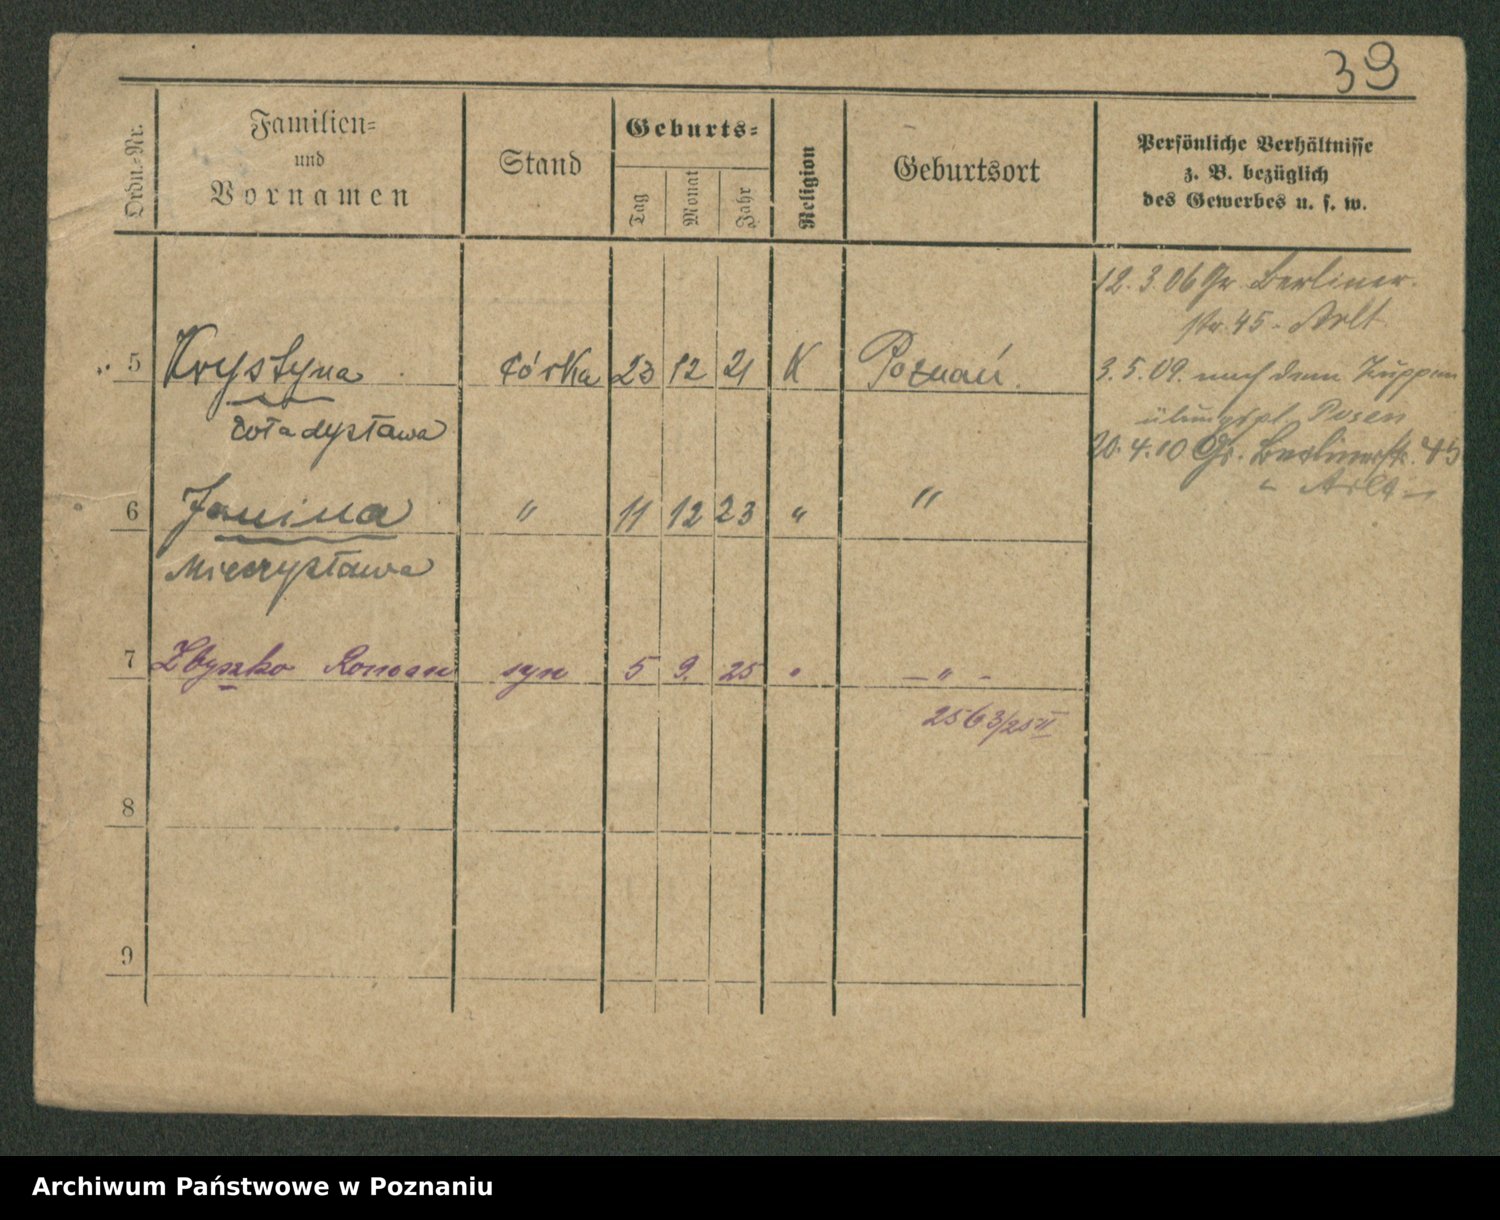 39
Ordn.-Nr.
Familien-
und
Vornamen
Stand
Geburts-
Tag
Monat
Jahr
Religion
Geburtsort
Persönliche Verhältnisse
z. B. bezüglich
des Gewerbes u. s. w.
12. 3. 06 Gr. Berliner-
str. 45 - Arlt
5 Krystyna córka 23 12 21 K Poznań.
3. 5. 09. nach dem Truppen
übungspl. Posen
20. 4. 10 Gr. Berlinerstr. 45
Arlt
6 Janina " 11 12 23 " "
Mieczysława
7 Zbyszko Roman syn 5 9. 25 " - " -
2563/25 II
8
9
Archiwum Państwowe w Poznaniu